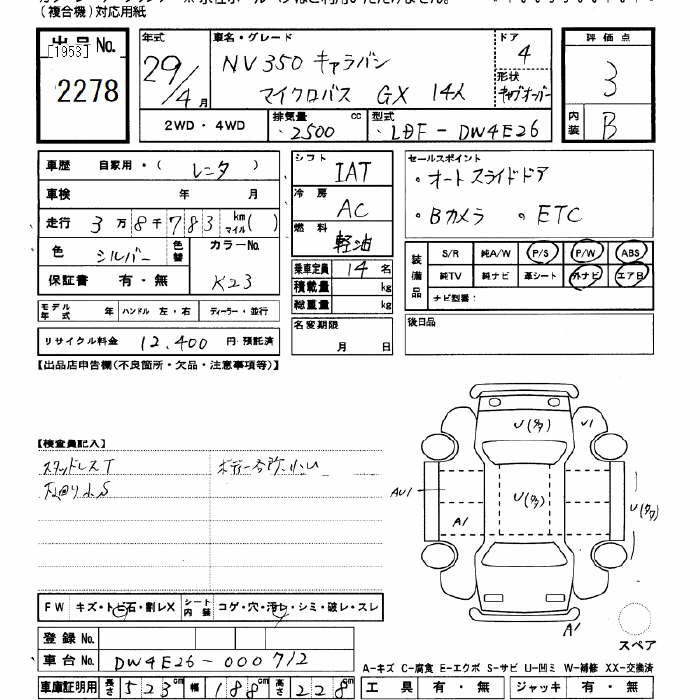 (複合機)対応用紙
出品No.
[1953]
2278
年式
29/4月
車名・グレード
NV350 キャラバン
マイクロバス GX 14人
ドア
4
形状
キャブオーバー
評価点
3
内装
B
2WD・4WD
排気量
2500 cc
型式
LDF-DW4E26
車歴 自家用・( レンタ )
車検 年 月
走行 3万8千783 km マイル( )
色 シルバー 色替
カラーNo.
K23
保証書 有・無
モデル年式 年 ハンドル 左・右 ディーラー・並行
リサイクル料金 12,400 円 預託済
シフト
IAT
冷房
AC
燃料
軽油
乗車定員 14 名
積載量 kg
総重量 kg
名変期限
月 日
セールスポイント
・オートスライドドア
・Bカメラ ・ETC
装備品
S/R 純A/W P/S P/W ABS
純TV 純ナビ 革シート 外ナビ エアB
ナビ型番:
後日品
【出品店申告欄(不良箇所・欠品・注意事項等)】
【検査員記入】
スタッドレスT
下回り小S
U(タワ)
U1
AU1
U(タワ)
A1
U(タワ)
A1
スペア
FW キズ・トビ石・割レX
シート内装 コゲ・穴・汚レ・シミ・破レ・スレ
登録No.
車台No. DW4E26-000712
車庫証明用 長さ 523cm 幅 188cm 高さ 228cm
A-キズ C-腐食 E-エクボ S-サビ U-凹ミ W-補修 XX-交換済
工具 有・無 ジャッキ 有・無